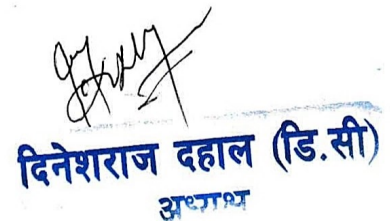 दिनेशराज दहाल (डि.सी)
अध्यक्ष